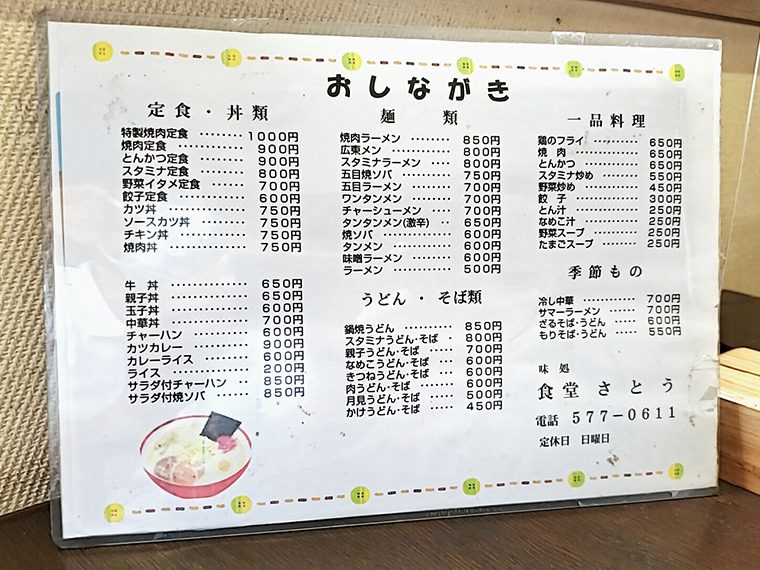 おしながき
定食・丼類
特製焼肉定食 ……… 1000円
焼肉定食 ………… 900円
とんかつ定食 ……… 900円
スタミナ定食 ……… 800円
野菜イタメ定食 …… 700円
餃子定食 ………… 600円
カツ丼 …………… 750円
ソースカツ丼 ……… 750円
チキン丼 ………… 750円
焼肉丼 …………… 750円
牛丼 …………… 650円
親子丼 …………… 650円
玉子丼 …………… 600円
中華丼 …………… 700円
チャーハン ……… 600円
カツカレー ……… 900円
カレーライス …… 600円
ライス …………… 200円
サラダ付チャーハン ‥ 850円
サラダ付焼ソバ …… 850円
麺類
焼肉ラーメン ……… 850円
広東メン ………… 800円
スタミナラーメン …… 800円
五目焼ソバ ……… 750円
五目ラーメン ……… 700円
ワンタンメン ……… 700円
チャーシューメン …… 700円
タンタンメン(激辛) ‥ 650円
焼ソバ …………… 600円
タンメン ………… 600円
味噌ラーメン ……… 600円
ラーメン ………… 500円
うどん・そば類
鍋焼うどん ……… 850円
スタミナうどん・そば ・ 800円
親子うどん・そば …… 700円
なめこうどん・そば … 600円
きつねうどん・そば … 600円
肉うどん・そば …… 600円
月見うどん・そば …… 500円
かけうどん・そば …… 450円
一品料理
鶏のフライ ……… 650円
焼肉 …………… 650円
とんかつ ………… 650円
スタミナ炒め ……… 550円
野菜炒め ………… 450円
餃子 …………… 300円
とん汁 …………… 250円
なめこ汁 ………… 250円
野菜スープ ……… 250円
たまごスープ ……… 250円
季節もの
冷し中華 ………… 700円
サマーラーメン …… 700円
ざるそば・うどん …… 600円
もりそば・うどん …… 550円
味処
食堂さとう
電話 577-0611
定休日 日曜日